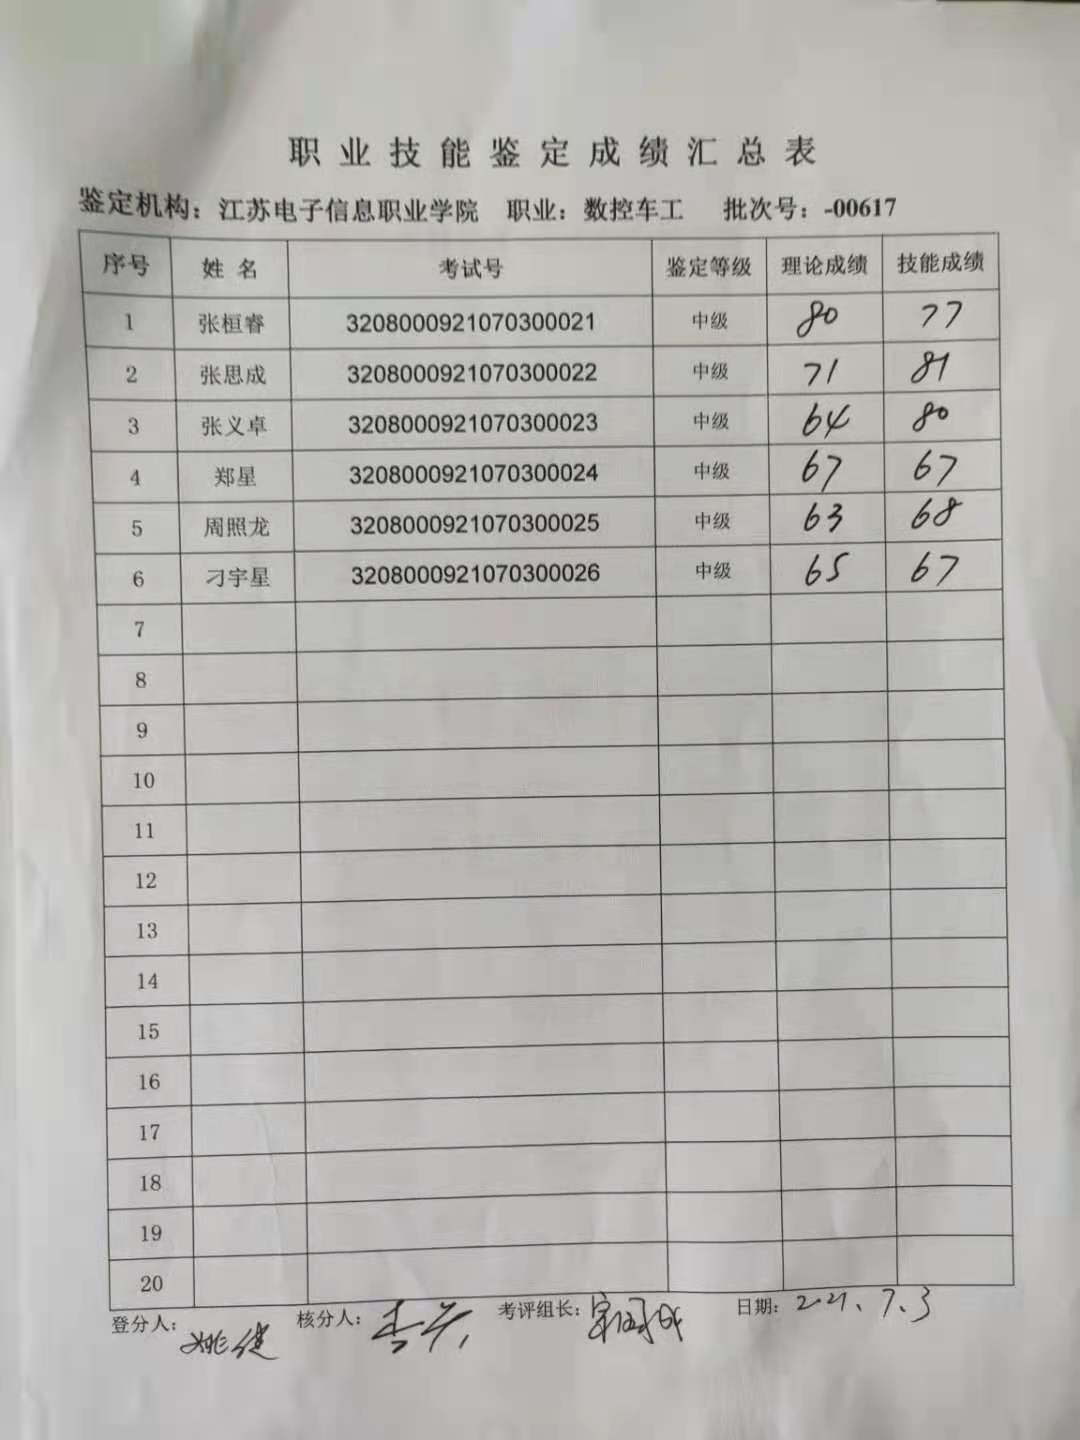 职业技能鉴定成绩汇总表
鉴定机构：江苏电子信息职业学院 职业：数控车工 批次号：-00617
序号 姓名 考试号 鉴定等级 理论成绩 技能成绩
1 张桓睿 3208000921070300021 中级 80 77
2 张思成 3208000921070300022 中级 71 81
3 张义卓 3208000921070300023 中级 64 80
4 郑星 3208000921070300024 中级 67 67
5 周照龙 3208000921070300025 中级 63 68
6 刁宇星 3208000921070300026 中级 65 67
7
8
9
10
11
12
13
14
15
16
17
18
19
20
登分人：姚健 核分人： 考评组长： 日期：2021、7、3